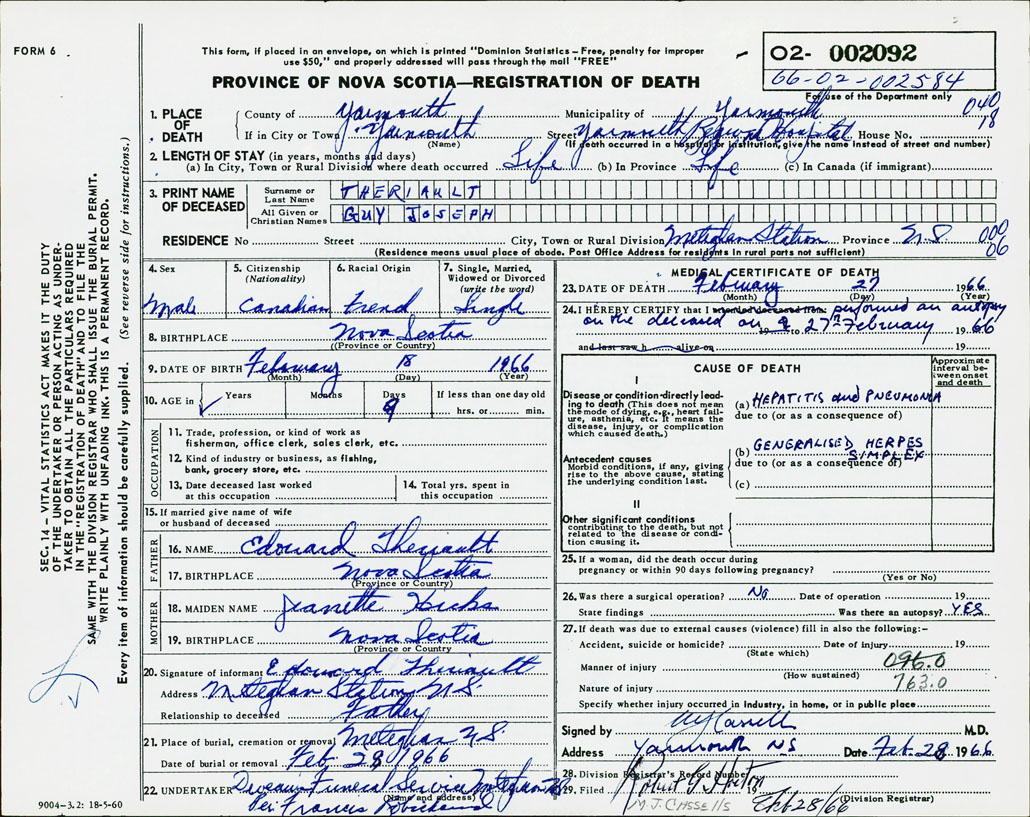 FORM 6
This form, if placed in an envelope, on which is printed "Dominion Statistics – Free, penalty for improper
use $50," and properly addressed will pass through the mail "FREE"
PROVINCE OF NOVA SCOTIA—REGISTRATION OF DEATH
02- 002092
66-02-002584
For use of the Department only
040
18
1. PLACE OF DEATH
County of Yarmouth Municipality of Yarmouth
If in City or Town Yarmouth Street Yarmouth Regional Hospital House No.
(Name) (If death occurred in a hospital or institution, give the name instead of street and number)
2. LENGTH OF STAY (in years, months and days)
(a) In City, Town or Rural Division where death occurred Life (b) In Province Life (c) In Canada (if immigrant)
3. PRINT NAME OF DECEASED
Surname or Last Name THERIAULT
All Given or Christian Names GUY JOSEPH
RESIDENCE No Street City, Town or Rural Division Meteghan Station Province N.S.
000
06
(Residence means usual place of abode. Post Office Address for residents in rural parts not sufficient)
4. Sex
Male
5. Citizenship (Nationality)
Canadian
6. Racial Origin
French
7. Single, Married, Widowed or Divorced (write the word)
Single
8. BIRTHPLACE Nova Scotia
(Province or Country)
9. DATE OF BIRTH February 18 1966
(Month) (Day) (Year)
10. AGE in Years Months Days 9 If less than one day old
hrs. or min.
OCCUPATION
11. Trade, profession, or kind of work as
fisherman, office clerk, sales clerk, etc.
12. Kind of industry or business, as fishing,
bank, grocery store, etc.
13. Date deceased last worked
at this occupation
14. Total yrs. spent in
this occupation
15. If married give name of wife
or husband of deceased
FATHER
16. NAME Edouard Theriault
17. BIRTHPLACE Nova Scotia
(Province or Country)
MOTHER
18. MAIDEN NAME Jeanette Hicks
19. BIRTHPLACE Nova Scotia
(Province or Country)
20. Signature of informant Edouard Theriault
Address Meteghan Station N.S.
Relationship to deceased Father
21. Place of burial, cremation or removal Meteghan N.S.
Date of burial or removal Feb. 28, 1966
22. UNDERTAKER Funeral Service Meteghan NS
(Name and address)
Per. Francis
9004–3.2: 18-5-60
MEDICAL CERTIFICATE OF DEATH
23. DATE OF DEATH February 27 1966
(Month) (Day) (Year)
24. I HEREBY CERTIFY that I attended deceased from performed an autopsy
on the deceased on 27th February 1966
and last saw h alive on 19
CAUSE OF DEATH
Approximate interval between onset and death
I
Disease or condition directly leading to death (This does not mean the mode of dying, e.g., heart failure, asthenia, etc. It means the disease, injury, or complication which caused death.)
(a) HEPATITIS and PNEUMONIA
due to (or as a consequence of)
Antecedent causes
Morbid conditions, if any, giving rise to the above cause, stating the underlying condition last.
(b) GENERALISED HERPES SIMPLEX
due to (or as a consequence of)
(c)
II
Other significant conditions
contributing to the death, but not related to the disease or condition causing it.
25. If a woman, did the death occur during
pregnancy or within 90 days following pregnancy?
(Yes or No)
26. Was there a surgical operation? No Date of operation 19
State findings Was there an autopsy? YES
27. If death was due to external causes (violence) fill in also the following:–
Accident, suicide or homicide? Date of injury 19
(State which)
Manner of injury 096.0
(How sustained)
Nature of injury 763.0
Specify whether injury occurred in industry, in home, or in public place
Signed by M.D.
Address Yarmouth NS Date Feb. 28 1966
28. Division Registrar's Record Number
29. Filed 19 Feb 28/66
(Division Registrar)
M.J. CASSELLS
SEC. 14 – VITAL STATISTICS ACT MAKES IT THE DUTY
OF THE UNDERTAKER OR PERSON ACTING AS UNDER-
TAKER TO OBTAIN ALL THE PARTICULARS REQUIRED
IN THE "REGISTRATION OF DEATH" AND TO FILE THE
SAME WITH THE DIVISION REGISTRAR WHO SHALL ISSUE THE BURIAL PERMIT.
WRITE PLAINLY WITH UNFADING INK. THIS IS A PERMANENT RECORD.
Every item of information should be carefully supplied. (See reverse side for instructions.)